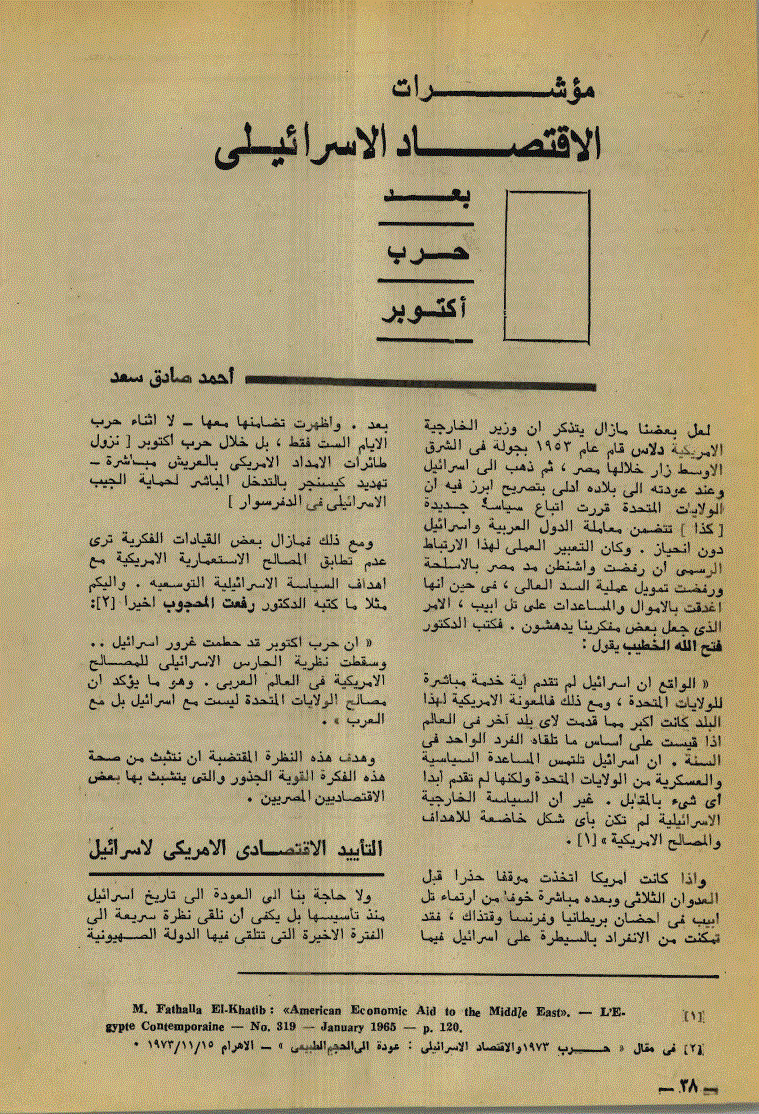 مؤشرات
الاقتصاد الاسرائيلى
بعد
حرب
أكتوبر
أحمد صادق سعد
لعل بعضنا مازال يتذكر ان وزير الخارجية
الامريكية دلاس قام عام ١٩٥٣ بجولة فى الشرق
الاوسط زار خلالها مصر ، ثم ذهب الى اسرائيل
وعند عودته الى بلاده أدلى بتصريح ابرز فيه أن
الولايات المتحدة قررت اتباع سياسة جديدة
[ كذا ] تتضمن معاملة الدول العربية واسرائيل
دون انحياز . وكان التعبير العملى لهذا الارتباط
الرسمى ان رفضت واشنطن مد مصر بالاسلحة
ورفضت تمويل عملية السد العالى ، فى حين أنها
اغدقت بالاموال والمساعدات على تل ابيب ، الامر
الذى جعل بعض مفكرينا يدهشون . فكتب الدكتور
فتح الله الخطيب يقول :
« الواقع ان اسرائيل لم تقدم أية خدمة مباشرة
للولايات المتحدة ، ومع ذلك فالمعونة الامريكية لهذا
البلد كانت أكبر مما قدمت لاى بلد آخر فى العالم
اذا قيست على أساس ما تلقاه الفرد الواحد فى
السنة . ان اسرائيل تلتمس المساعدة السياسية
والعسكرية من الولايات المتحدة ولكنها لم تقدم أبدا
أى شىء بالمقابل . غير ان السياسة الخارجية
الاسرائيلية لم تكن بأى شكل خاضعة للاهداف
والمصالح الامريكية » [١] .
واذا كانت أمريكا اتخذت موقفا حذرا قبل
العدوان الثلاثى وبعده مباشرة خوفا من ارتماء تل
ابيب فى احضان بريطانيا وفرنسا وقتذاك ، فقد
تمكنت من الانفراد بالسيطرة على اسرائيل فيما
بعد . وأظهرت تضامنها معها – لا اثناء حرب
الايام الست فقط ، بل خلال حرب أكتوبر [ نزول
طائرات الامداد الامريكى بالعريش مباشرة –
تهديد كيسنجر بالتدخل المباشر لحماية الجيب
الاسرائيلى فى الدفرسوار ]
ومع ذلك فمازال بعض القيادات الفكرية ترى
عدم تطابق المصالح الاستعمارية الامريكية مع
اهداف السياسة الاسرائيلية التوسعيه . واليكم
مثلا ما كتبه الدكتور رفعت المحجوب اخيرا [٢]:
« ان حرب أكتوبر قد حطمت غرور اسرائيل ..
وسقطت نظرية الحارس الاسرائيلى للمصالح
الامريكية فى العالم العربى . وهو ما يؤكد ان
مصالح الولايات المتحدة ليست مع اسرائيل بل مع
العرب » .
وهدف هذه النظرة المقتضبة ان نتثبث من صحة
هذه الفكرة القوية الجذور والتى يتشبث بها بعض
الاقتصاديين المصريين .
التأييد الاقتصادى الامريكى لاسرائيل
ولا حاجة بنا الى العودة الى تاريخ اسرائيل
منذ تأسيسها بل يكفى أن نلقى نظرة سريعة الى
الفترة الاخيرة التى تتلقى فيها الدولة الصهيونية
[١] M. Fathalla El-Khatib : «American Economic Aid to the Middle East». — L'E-
gypte Contemporaine — No. 319 — January 1965 — p. 120.
[٢] فى مقال « حرب ١٩٧٣ والاقتصاد الاسرائيلى : عودة الى الحجم الطبيعى » – الاهرام ١٩٧٣/١١/١٥ .
– ٣٨ –